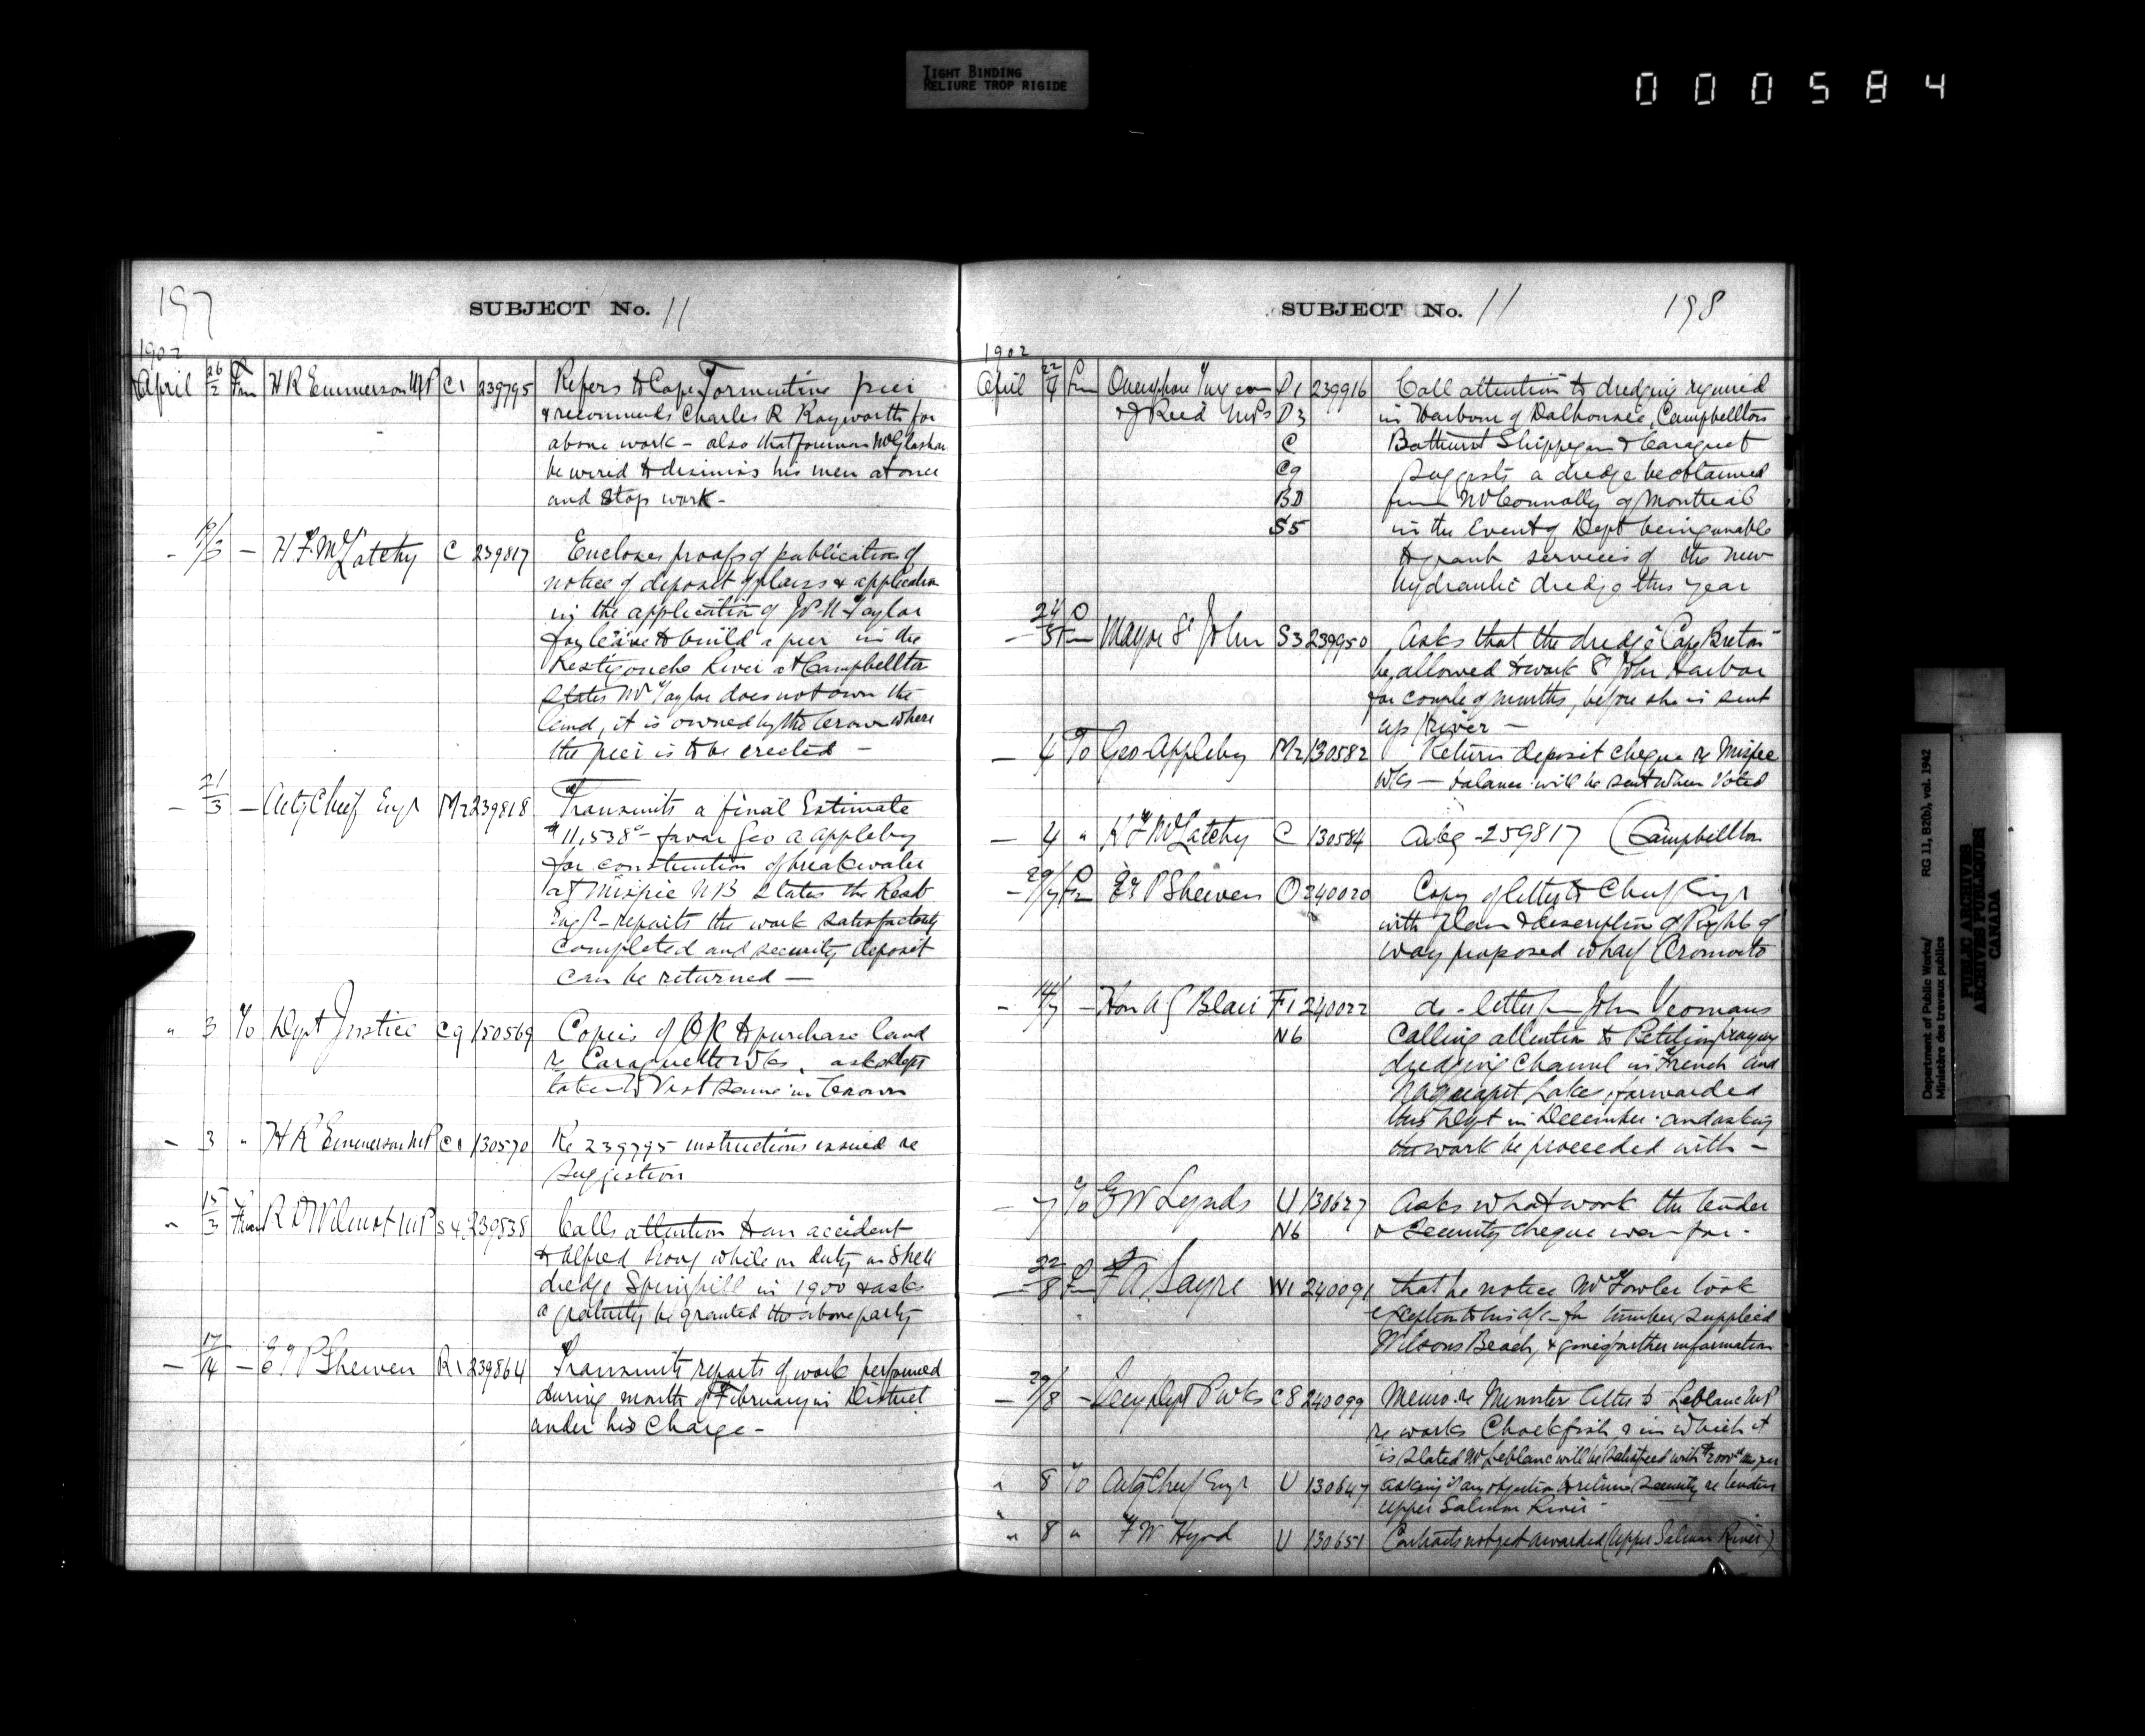 TIGHT BINDING
RELIURE TROP RIGIDE
000584
197
SUBJECT No. 11
1902
April 26/2 Frm H R Emmerson MP C1 239795 Refers to Cape Tormentine pier
& recommends Charles R Rayworth for
above work - also that foreman McGlashan
be wired to dismiss his men at once
and stop work -
- H F McLatchy C 239817 Encloses proofs of publication of
notice of deposit of plans & application
in the application of Taylor
for leave to build a pier in the
Restigouche River at Campbellton
States Mr Taylor does not own the
land, it is owned by the Crown where
the pier is to be erected -
- 21/3 - Actg Chief Engr M2 239818 Transmits a final Estimate
$11,538 - favor Geo A Appleby
for construction of breakwater
at Mispic NB States the Resdt
Engr - reports the work satisfactorily
completed and security deposit
can be returned -
" 3 To Dept Justice C9 130569 Copies of OC to purchase land
re Caraquette Wks, ask
to Vest same in Crown
- 3 " H R Emmerson MP C1 130570 Re 239795 instructions issued re
suggestion
" 15/3 From R D Wilmot MP S4 239838 Calls attention to an accident
to Alfred while on duty on
dredge Springhill in 1900 & asks
a gratuity be granted the above party
- 17/14 - E T P Shewen R1 239864 Transmits reports of work performed
during month of February in District
under his Charge -
SUBJECT No. 11
198
1902
April 22/4 Fm O Turgeon D1 239916 Call attention to dredging required
& J Reid MPs D3 in Harbour of Dalhousie, Campbellton
C Bathurst Shippegan & Caraquet
C9 suggests a dredge be obtained
BD from Mr Connolly of Montreal
S5 in the Event of Dept being unable
to grant services of the new
hydraulic dredge this year
- 24/3 Fm Mayor St John S3 239950 Asks that the dredge "Cape Breton"
be allowed to work St John Harbor
for couple of months, before she is sent
up River -
- 4 To Geo Appleby M2 130582 Return deposit cheque re Mispec
Wks - balance will be sent when Voted
- 4 " H F McLatchy C 130584 239817 (Campbellton
- Fm E T P Shewen O 240020 Copy of letter to Chief Engr
with Plan & description of Right of
way proposed wharf Oromocto
- - Hon A G Blair F1 240022 do - letter fm John Yeomans
N6 Calling attention to Petition praying
dredging Channel in French and
Maquapit Lake, forwarded
this Dept in December - and asking
the work be proceeded with -
- 7 To G W Lynds U 130627 Asks what work the tender
N6 & Security cheque was for -
- 22/8 Fm F A Sayre W1 240091 that he notice Mr Fowler took
exception to his a/c - for lumber supplied
Wilsons Beach, & gives further information
- 29/8 - Secy Dept P Wks C8 240099 Memo re Minister letter to Leblanc MP
re works Chockfish, & in which it
is stated Mr Leblanc will be satisfied with $2000 this year
" 8 To Actg Chief Engr U 130647 asking if any objection to return Security re tenders
Upper Salmon River -
" 8 " F W U 130651 Contracts not yet awarded (Upper Salmon River)
Department of Public Works/
Ministère des travaux publics
RG 11, B2(b), vol. 1942
PUBLIC ARCHIVES
ARCHIVES PUBLIQUES
CANADA